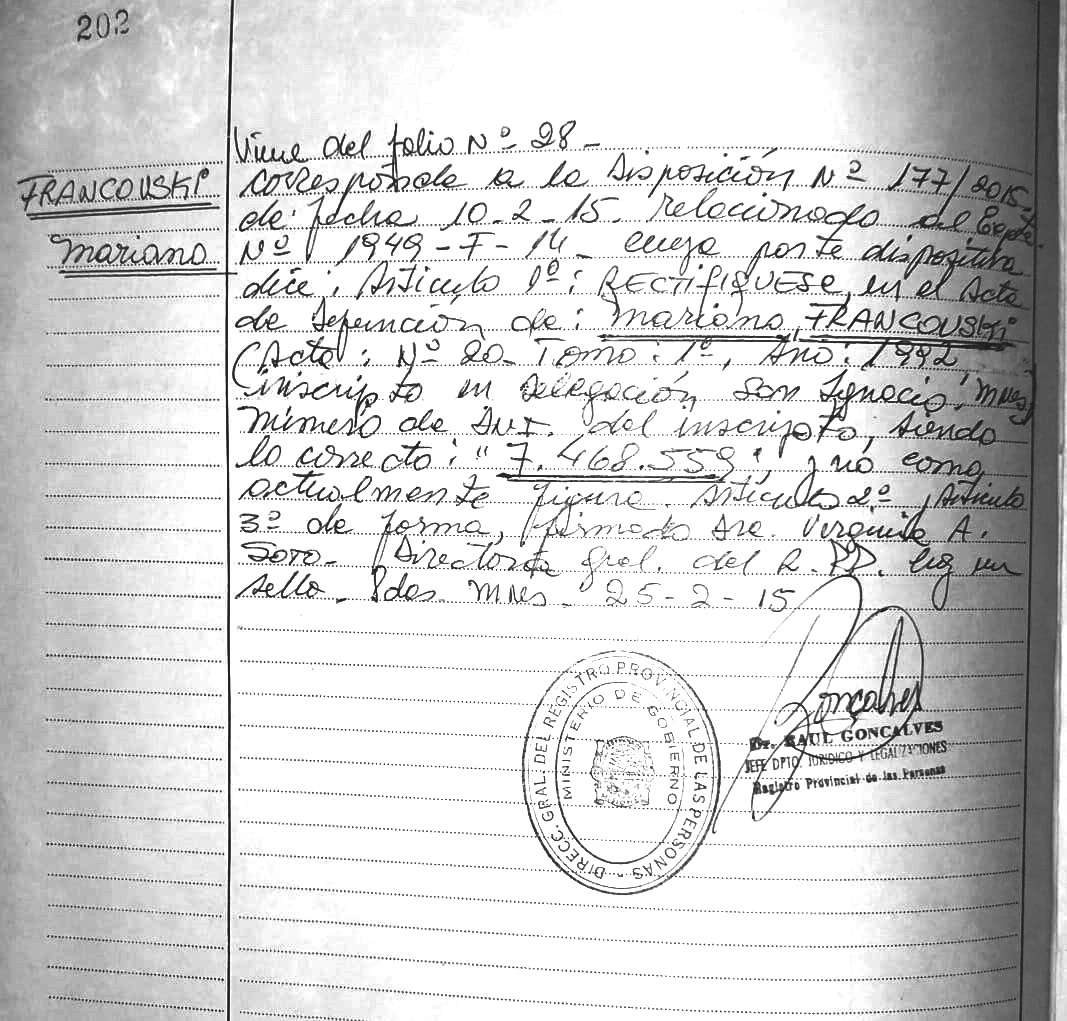 202
FRANCOUSKI
Mariano
Viene del folio Nº 28 -
corresponde a la Disposición Nº 177/2015.
de fecha 10-2-15. relacionado al Expte.
Nº 1949-F-14 cuya parte dispositiva
dice: Articulo 1º: RECTIFIQUESE, en el Acta
de Defunción de: Mariano FRANCOUSKI
(Acta: Nº 20 - Tomo: 1º, Año: 1992,
inscripto en Delegación San Ignacio, Mnes)
Número de D.N.I. del inscripto, siendo
lo correcto: "7.468.559", y no como
actualmente figura. Articulo 2º, Articulo
3º de forma, firmado Dra. A.
Soto - Directora Gral. del R.P.P. hay un
sello - Pdas. Mnes - 25-2-15
Goncalves
Dr. RAUL GONCALVES
JEFE DPTO. JURIDICO Y LEGALIZACIONES
Registro Provincial de las Personas
DIRECC. GRAL. DEL REGISTRO PROVINCIAL DE LAS PERSONAS -
MINISTERIO DE GOBIERNO